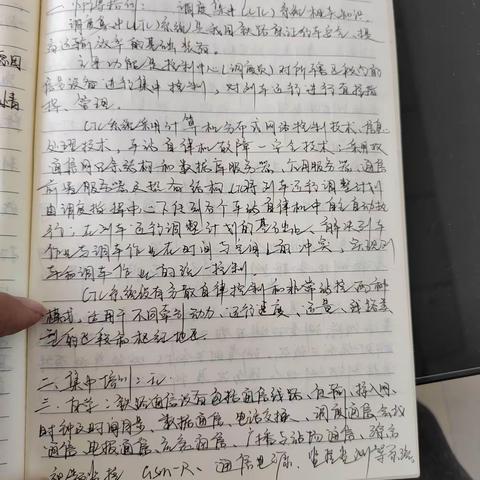 一、所得培训: 调度集中(CTC)系统相关知识.
调度集中(CTC)系统是我国铁路保证行车安全、提
高运输效率的基础装备.
主要功能是控制中心(调度员)对所辖区段内的
信号设备进行集中控制, 对列车运行进行直接指
挥、管理.
CTC系统采用计算机分布式网络控制技术、信息
处理技术, 车站自律机故障—安全技术: 采用双
通信网冗余结构和数据库服务器、应用服务器、通信
前置服务器双热备结构. CTC将列车运行调整计划
由调度指挥中心下传到各个车站自律机中自主自动执
行; 在列车运行调整计划的基础上, 解决列车
作业与调车作业在时间与空间上的冲突, 实现列
车和调车作业的统一控制.
CTC系统设有分散自律控制和非常站控两种
模式. 适用于不同牵引动力、运行速度、运量、线路类
型的
二、集中培训: 无.
三、自学: 铁路通信设有包括通信线路、传输、接入网、
时钟及时间同步、数据通信、电话交换、调度通信、会议
通信、电报通信、应急通信、广播与站场通信、综合
视频监控 GSM-R、通信电源、监控监测等系统